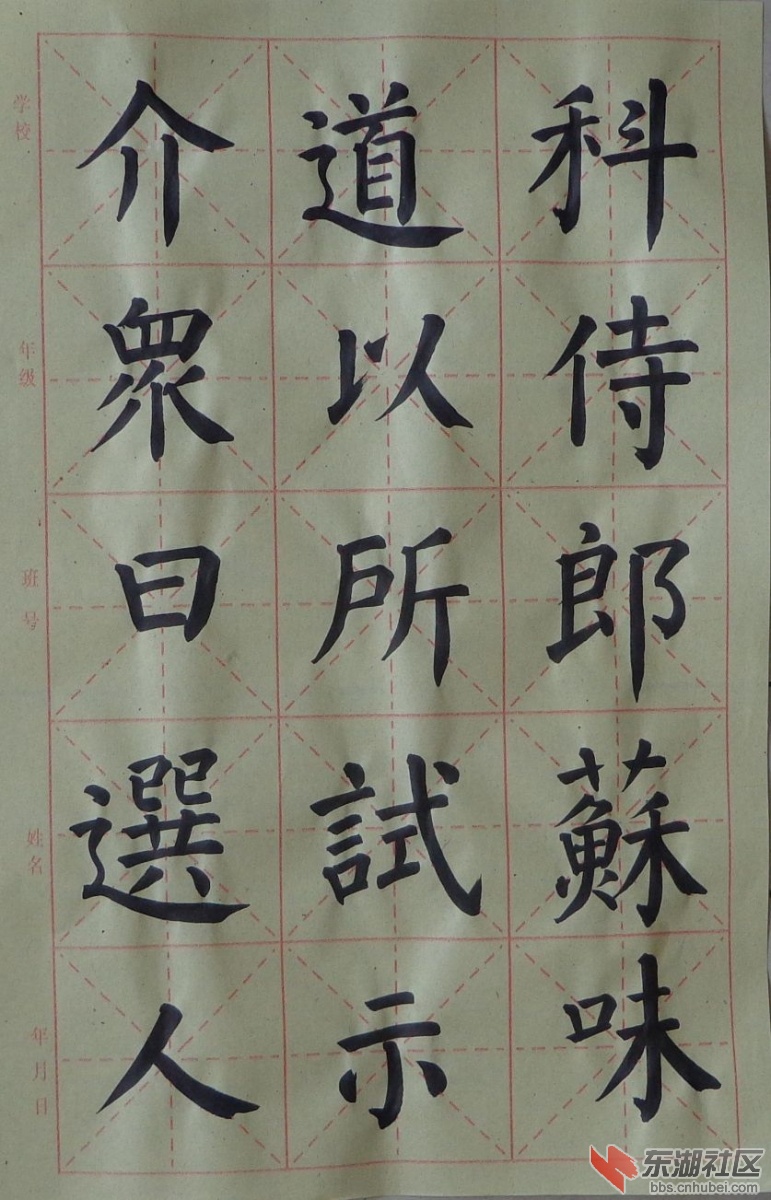 科侍郎蘇味
道以所試示
介眾曰選人
学校
年级
班号
姓名
年月日
东湖社区
bbs.cnhubei.com